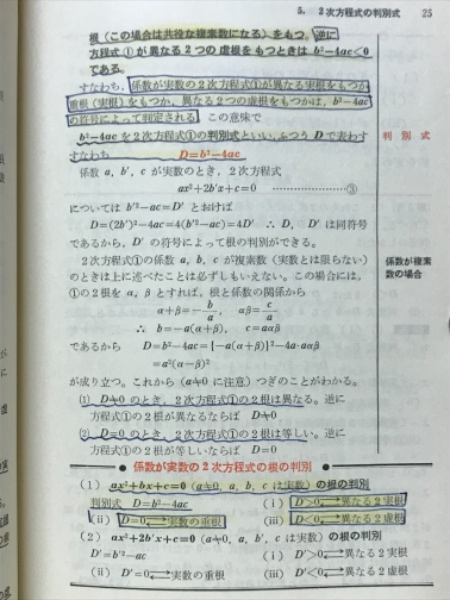 5. 2次方程式の判別式 25
根(この場合は共役な複素数になる)をもつ。逆に
方程式①が異なる2つの虚根をもつときは b²−4ac<0
である。
すなわち，係数が実数の2次方程式①が異なる実根をもつか
重根(実根)をもつか，異なる2つの虚根をもつかは，b²−4ac
の符号によって判定される この意味で
b²−4ac を2次方程式①の判別式といい，ふつう D で表わす
判別式
すなわち D=b²−4ac
係数 a, b', c が実数のとき，2次方程式
ax²+2b'x+c=0 ……………③
については b'²−ac=D' とおけば
D=(2b')²−4ac=4(b'²−ac)=4D' ∴ D, D' は同符号
であるから，D' の符号によって根の判別ができる。
2次方程式①の係数 a, b, c が複素数(実数とは限らない)
係数が複素
数の場合
のときは上に述べたことは必ずしもいえない。この場合には，
①の2根を α, β とすれば，根と係数の関係から
α+β=−b/a, αβ=c/a
∴ b=−a(α+β), c=aαβ
であるから D=b²−4ac={−a(α+β)}²−4a·aαβ
=a²(α−β)²
が成り立つ。これから(a≠0 に注意)つぎのことがわかる。
(1) D≠0 のとき，2次方程式①の2根は異なる。逆に
方程式①の2根が異なるならば D≠0
(2) D=0 のとき，2次方程式①の2根は等しい。逆に
方程式①の2根が等しいならば D=0
● 係数が実数の2次方程式の根の判別 ●
(1) ax²+bx+c=0 (a≠0, a, b, c は実数) の根の判別
判別式 D=b²−4ac (i) D>0⇄異なる2実根
(ii) D=0⇄実数の重根 (iii) D<0⇄異なる2虚根
(2) ax²+2b'x+c=0 (a≠0, a, b', c は実数) の根の判別
D'=b'²−ac (i) D'>0⇄異なる2実根
(ii) D'=0⇄実数の重根 (iii) D'<0⇄異なる2虚根